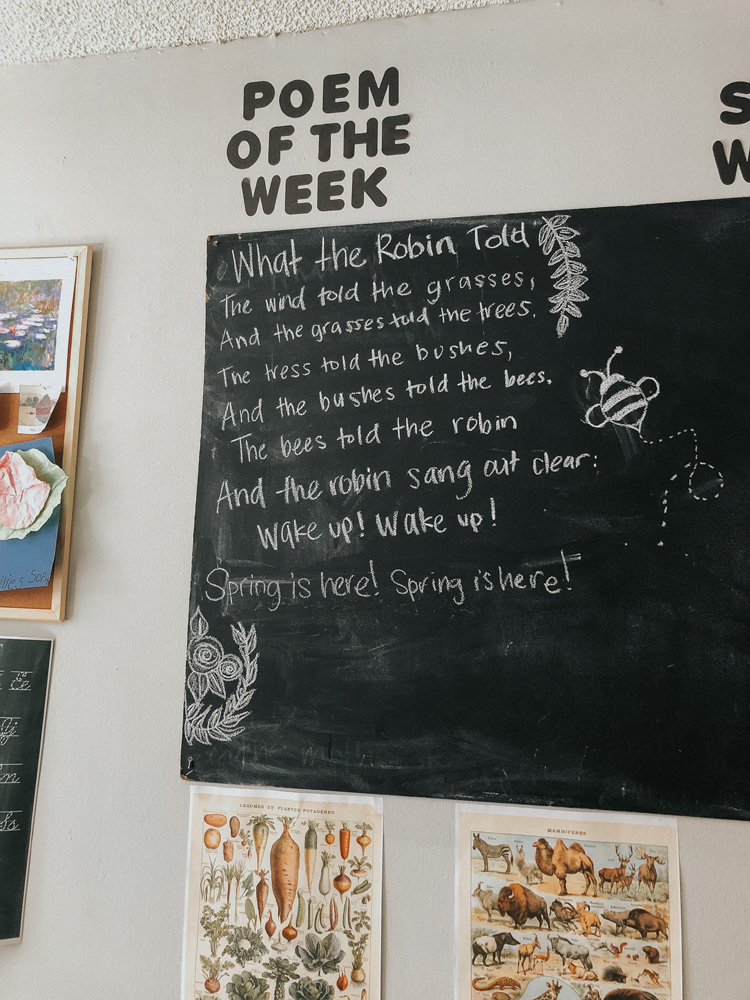 POEM
OF THE
WEEK
S
W
What the Robin Told
The wind told the grasses,
And the grasses told the trees.
The tress told the bushes,
And the bushes told the bees.
The bees told the robin
And the robin sang out clear:
Wake up! Wake up!
Spring is here! Spring is here!
Ee
n
Ss
LÉGUMES ET PLANTES POTAGÈRES
MAMMIFÈRES